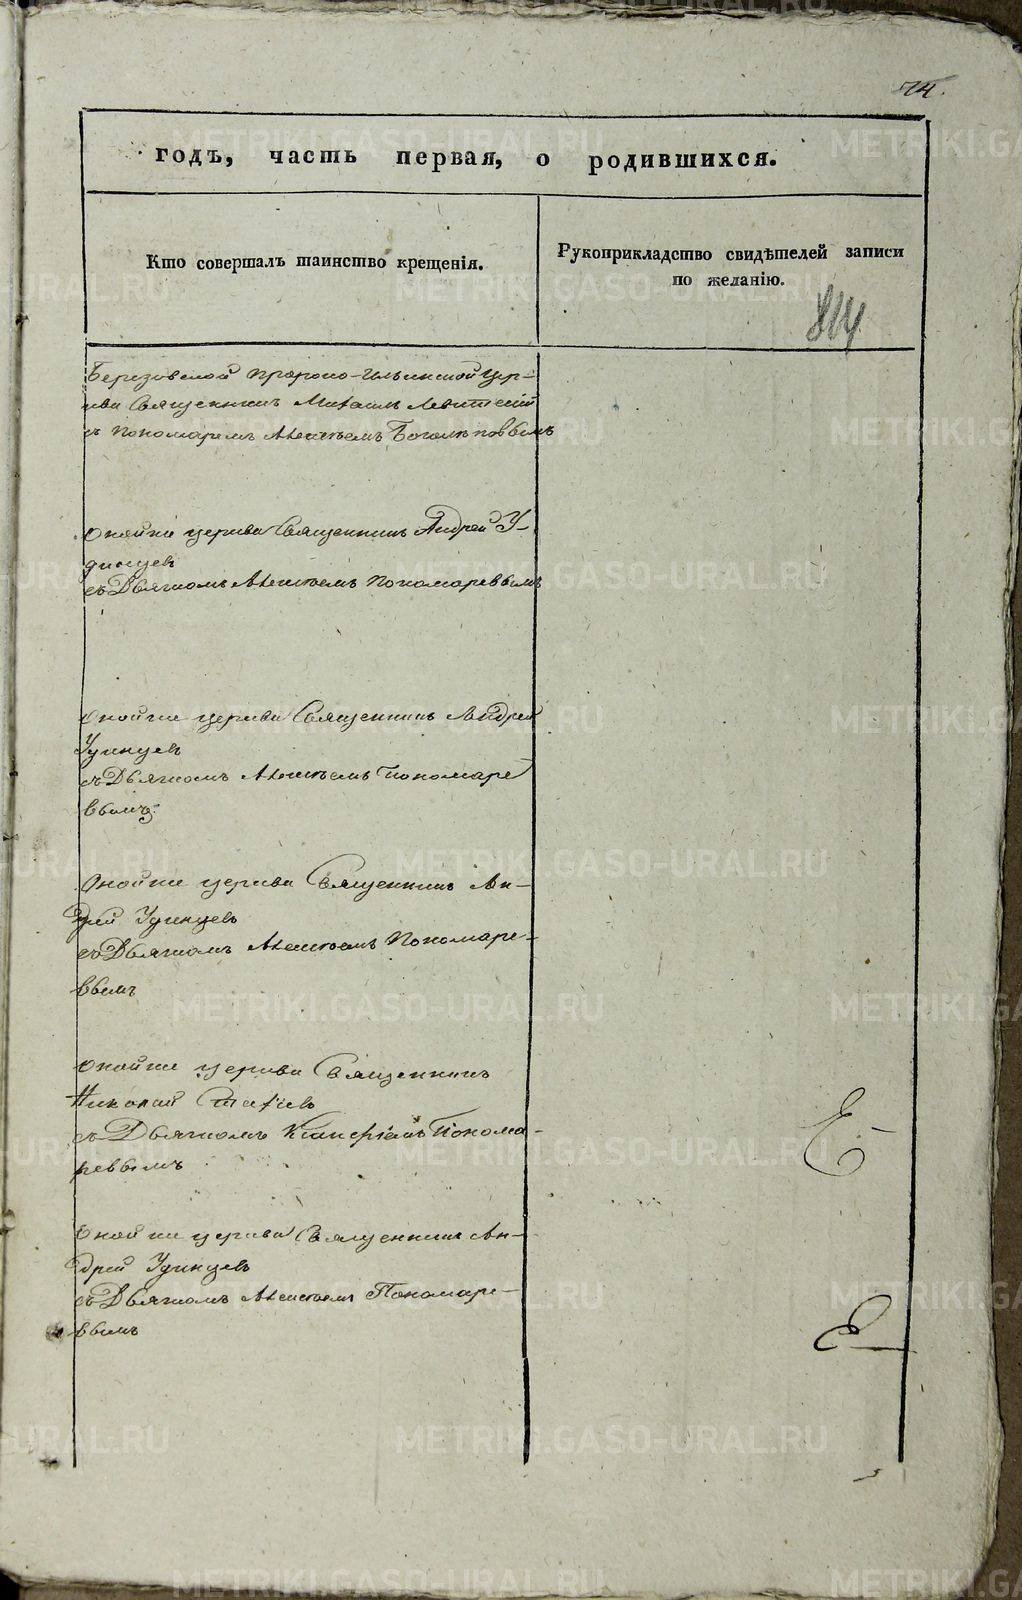 74.
годъ, часть первая, о родившихся.
Кто совершалъ таинство крещенія.
Рукоприкладство свидѣтелей записи
по желанію.
814
Березовской Пророко-Ильинской Цер-
кви Священникъ Михаилъ Левитскій
съ Пономаремъ Алексѣемъ Боголѣповымъ
Оной же церкви Священникъ Андрей У-
динцев
съ Дьячкомъ Алексѣемъ Пономаревымъ
Оной же церкви Священникъ Андрей
Удинцев
съ Дьячкомъ Алексѣемъ Пономаре
вымъ
Оной же церкви Священникъ Ан-
дрей Удинцевъ
съ Дьячкомъ Алексѣемъ Пономаре-
вымъ
Оной же церкви Священникъ
Николай
съ Дьячкомъ Понома-
ревымъ
Оной же церкви Священникъ Ан-
дрей Удинцевъ
съ Дьячкомъ Алексѣемъ Пономаре-
вымъ
METRIKI.GASO-URAL.RU